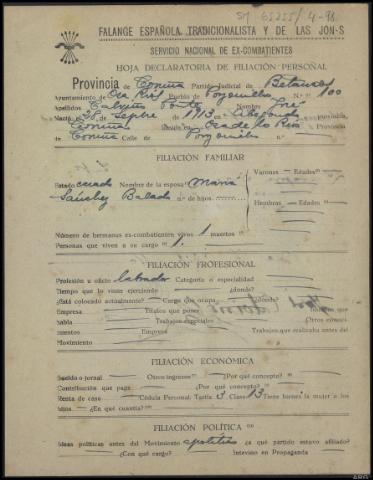 SM 65255/4-98
FALANGE ESPAÑOLA TRADICIONALISTA Y DE LAS JON-S
SERVICIO NACIONAL DE EX-COMBATIENTES
HOJA DECLARATORIA DE FILIACIÓN PERSONAL
Provincia de Coruña Partido Judicial de Betanzos
Ayuntamiento de Oza Rios Pueblo de N.º 100
Apellidos Nombre José
Nació el 28 de Sepbre de 1913 en Provincia
de Coruña Oza de los Rios Provincia
de Coruña Calle de
FILIACIÓN FAMILIAR
Estado casado Nombre de la esposa María
Sánchez N.º de hijos
Varones — Edades
Hembras — Edades
Número de hermanos ex-combatientes vivos 1 muertos
Personas que viven a su cargo 1.
FILIACIÓN PROFESIONAL
Profesión u oficio labrador Categoría o especialidad
Tiempo que lo viene ejerciendo ¿donde?
¿Está colocado actualmente? Cargo que ocupa ¿donde?
Empresa Títulos que posee Idiomas que
habla Trabajos especiales Otros conoci-
mientos Empresa Trabajos que realizaba antes del
Movimiento
FILIACIÓN ECONÓMICA
Sueldo o jornal Otros ingresos ¿Por qué concepto?
Contribución que paga ¿Por qué concepto?
Renta de casa Cédula Personal: Tarifa 3 Clase 13 Tiene bienes la mujer o los
hijos ¿En qué cuantía?
FILIACIÓN POLÍTICA
Ideas políticas antes del Movimiento apolítico ¿a qué partido estuvo afiliado?
¿Con qué cargo? Intervino en Propaganda